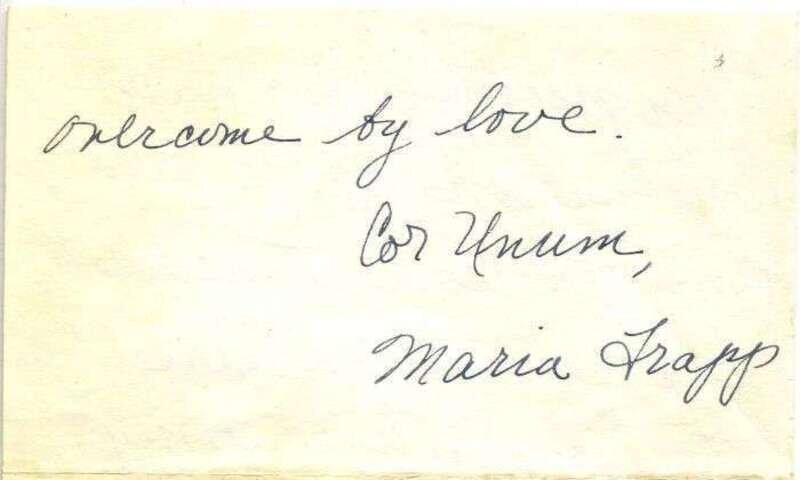 overcome by love.
Cor Unum,
Maria Trapp